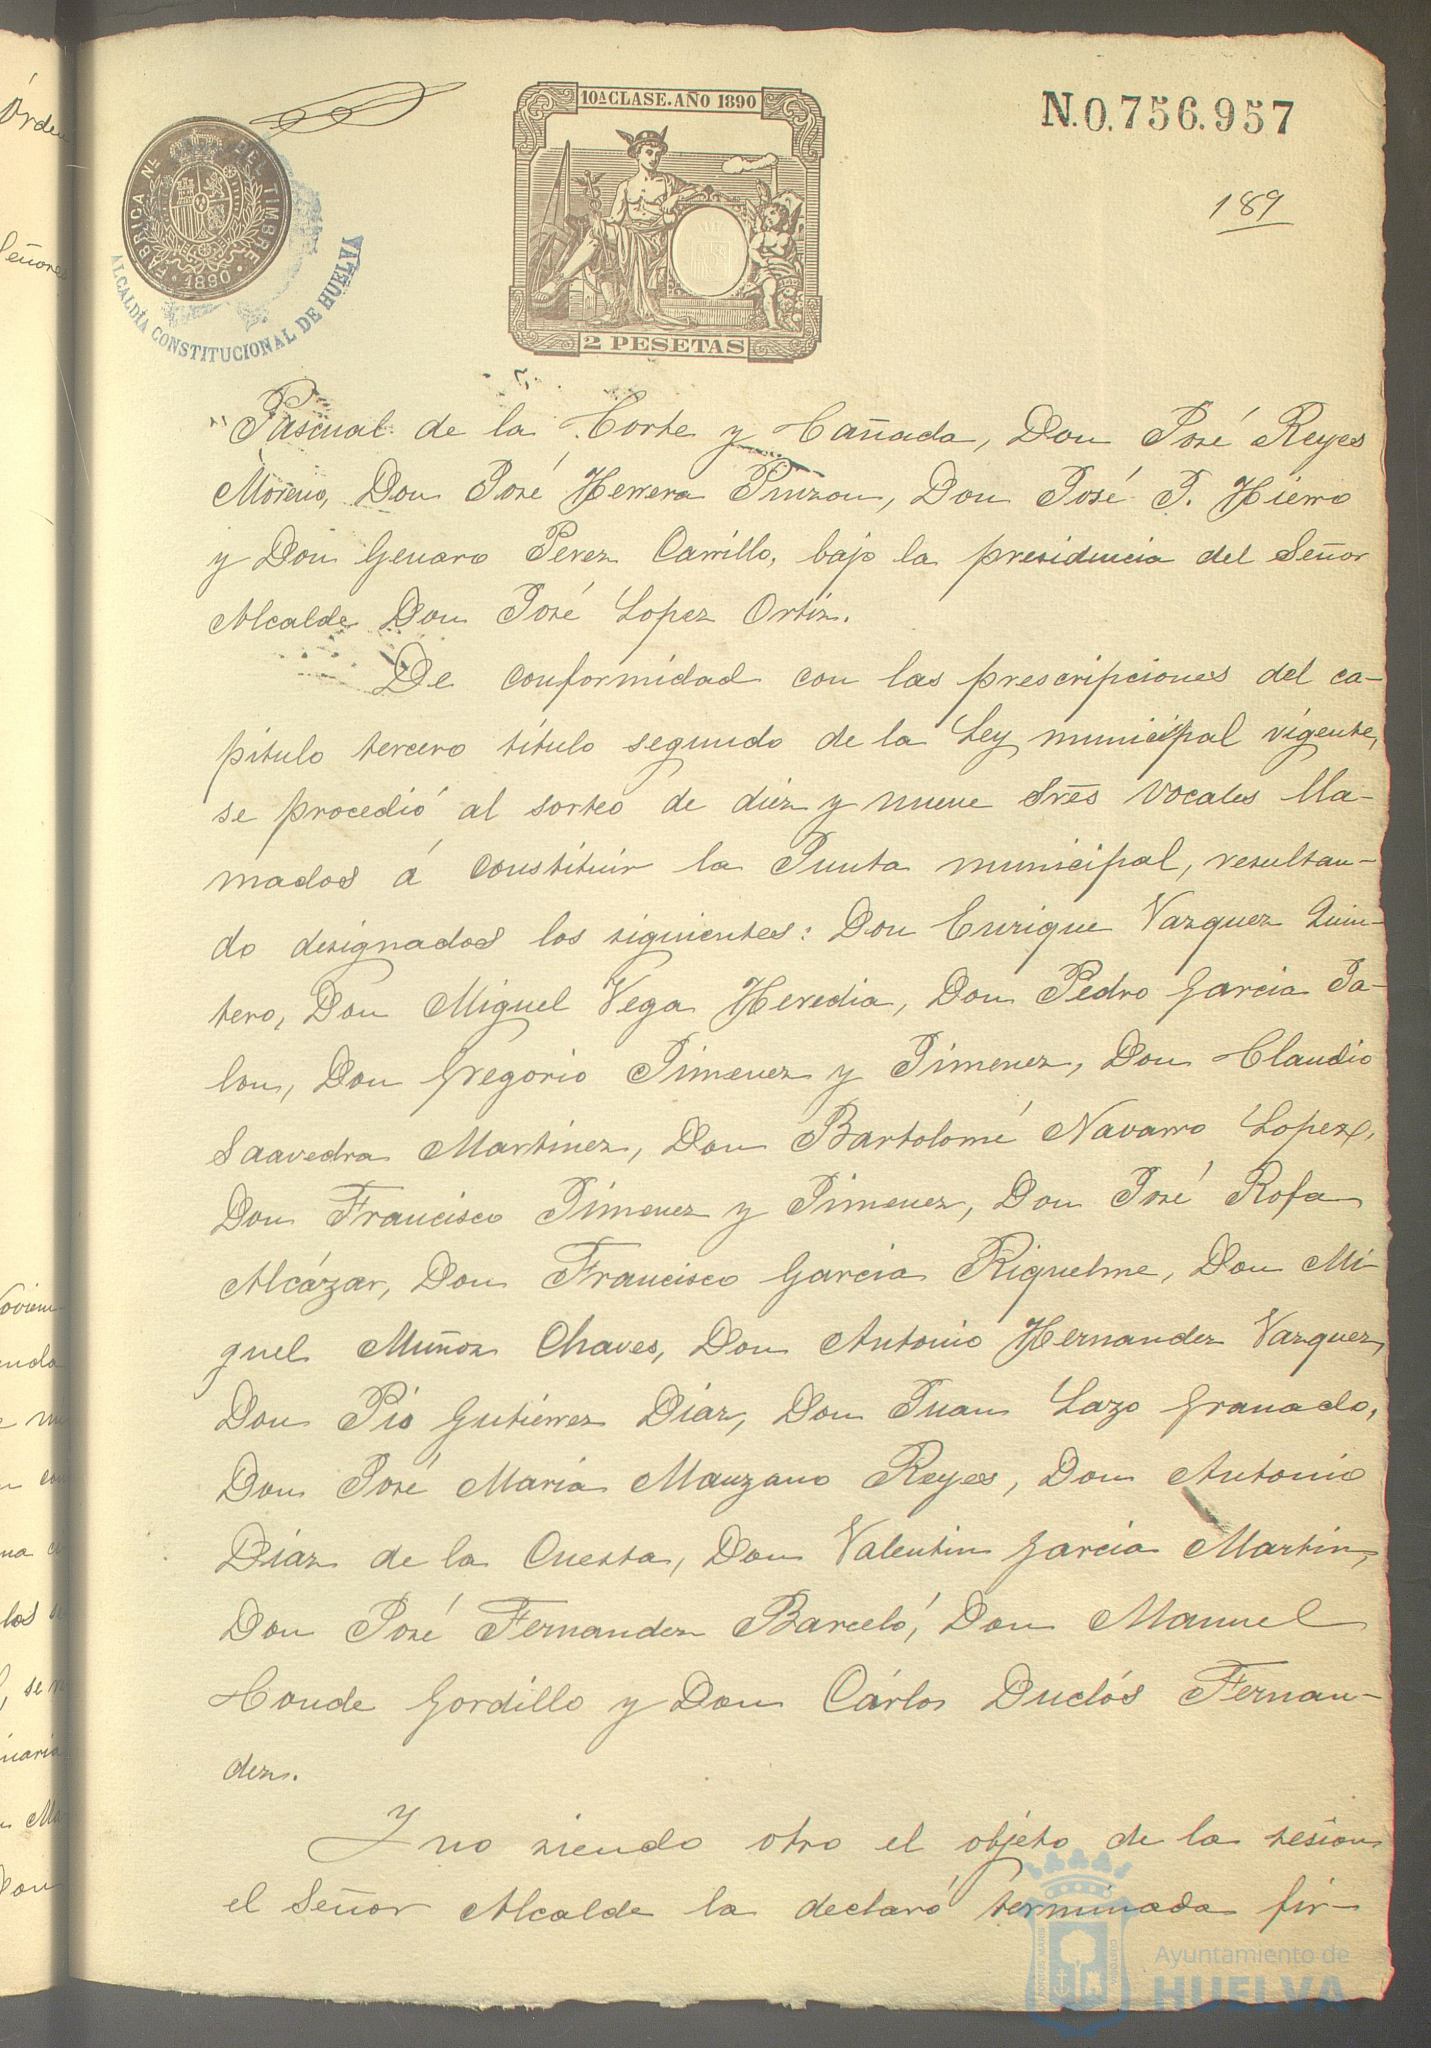 10ª CLASE. AÑO 1890
N. 0.756.957
FABRICA Nˡ DEL TIMBRE
1890
ALCALDÍA CONSTITUCIONAL DE HUELVA
189
2 PESETAS
Pascual de la Corte y Cañada, Don José Reyes
Moreno, Don José Herrera Pinzon, Don José J. Hierro
y Don Genaro Perez Carrillo, bajo la presidencia del Señor
Alcalde Don José Lopez Ortiz.
De conformidad con las prescripciones del ca-
pitulo tercero titulo segundo de la Ley municipal vigente,
se procedió al sorteo de diez y nueve Srēs vocales lla-
mados á constituir la Junta municipal, resultan-
do designados los siguientes: Don Enrique Vazquez Quin-
tero, Don Miguel Vega Heredia, Don Pedro Garcia Ja-
lon, Don Gregorio Jimenez y Jimenez, Don Claudio
Saavedra Martinez, Don Bartolomé Navarro Lopez,
Don Francisco Jimenez y Jimenez, Don José Rofa
Alcázar, Don Francisco Garcia Riquelme, Don Mi-
guel Muñoz Chaves, Don Antonio Hernandez Vazquez,
Don Pio Gutierrez Diaz, Don Juan Lazo Granado,
Don José Maria Manzano Reyes, Don Antonio
Diaz de la Cuesta, Don Valentin Garcia Martin,
Don José Fernandez Barceló, Don Manuel
Conde Gordillo y Don Cárlos Duclós Fernan-
dez.
Y no siendo otro el objeto de la sesion
el Señor Alcalde la declaró terminada fir-
Ayuntamiento de
HUELVA